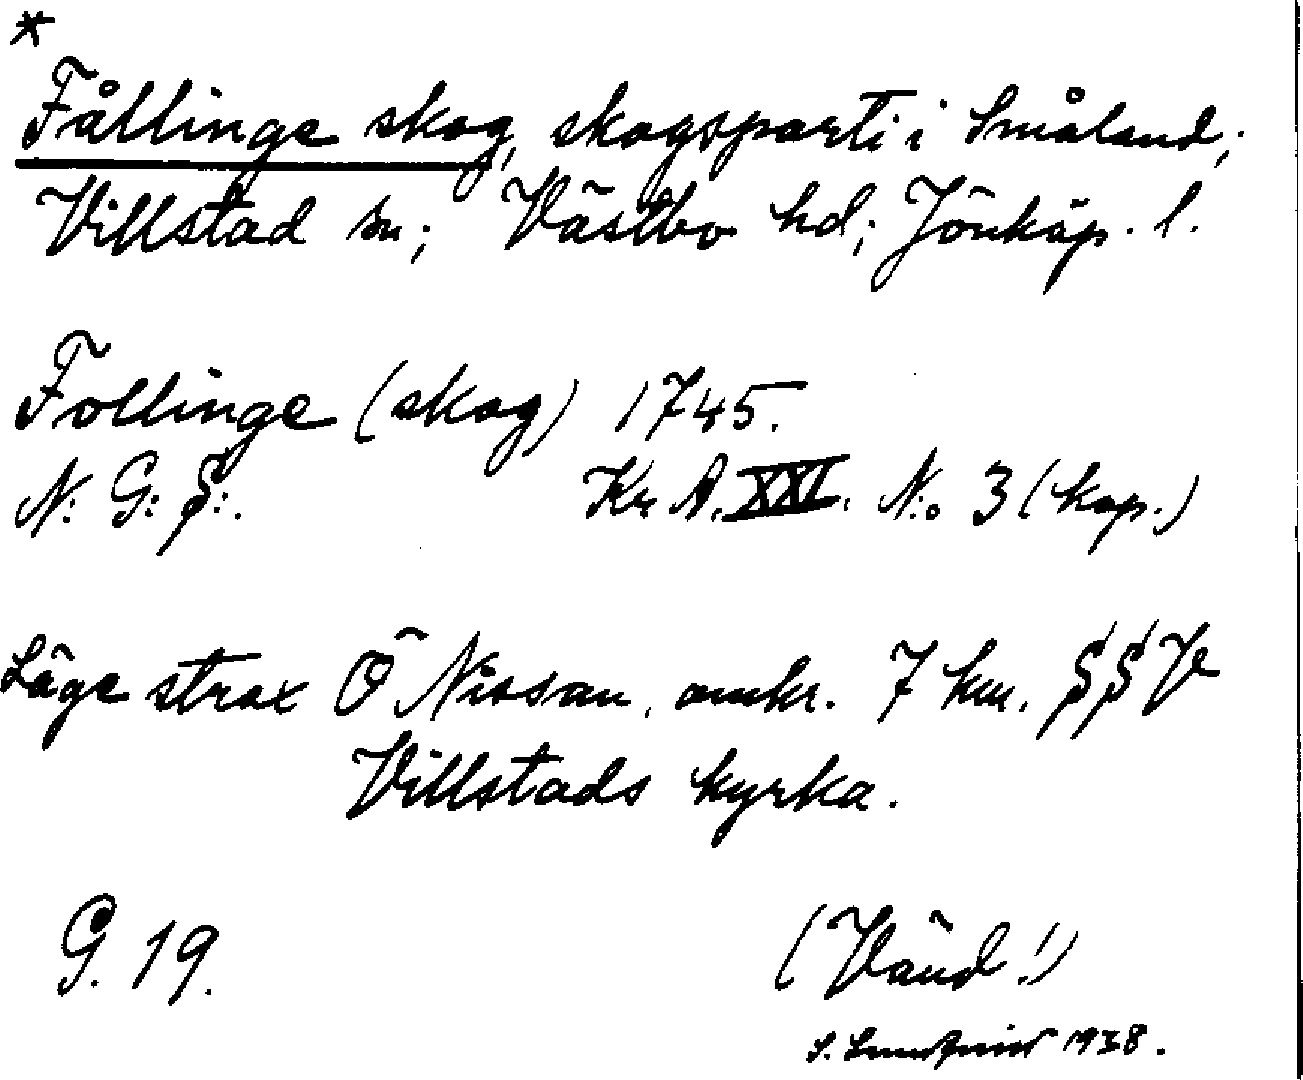 *
Fållinge skog, skogsparti i Småland;
Villstad sn; Västbo hd; Jönköp. l.
Follinge (skog) 1745.
N: G: S:. Kr. A. XXI. N:o 3 (kop.)
Läge strax Ö Nissan, omkr. 7 km. SSV
Villstads kyrka.
G. 19. (Vänd!)
S. 1938.